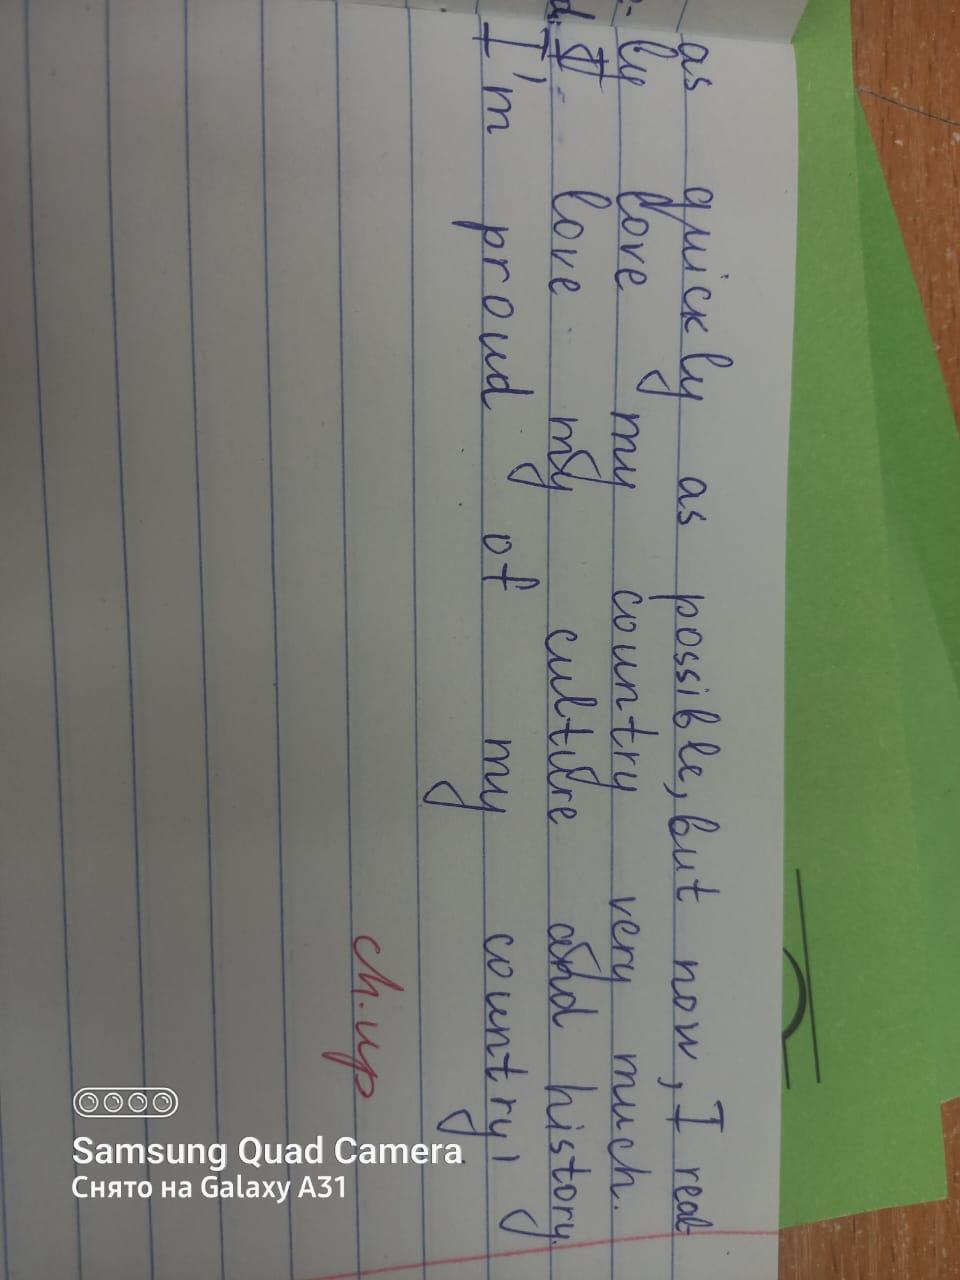 as quickly as possible, but now, I real-
ly love my country very much.
I love my culture and history.
I'm proud of my country!
ch. up
Samsung Quad Camera
Снято на Galaxy A31